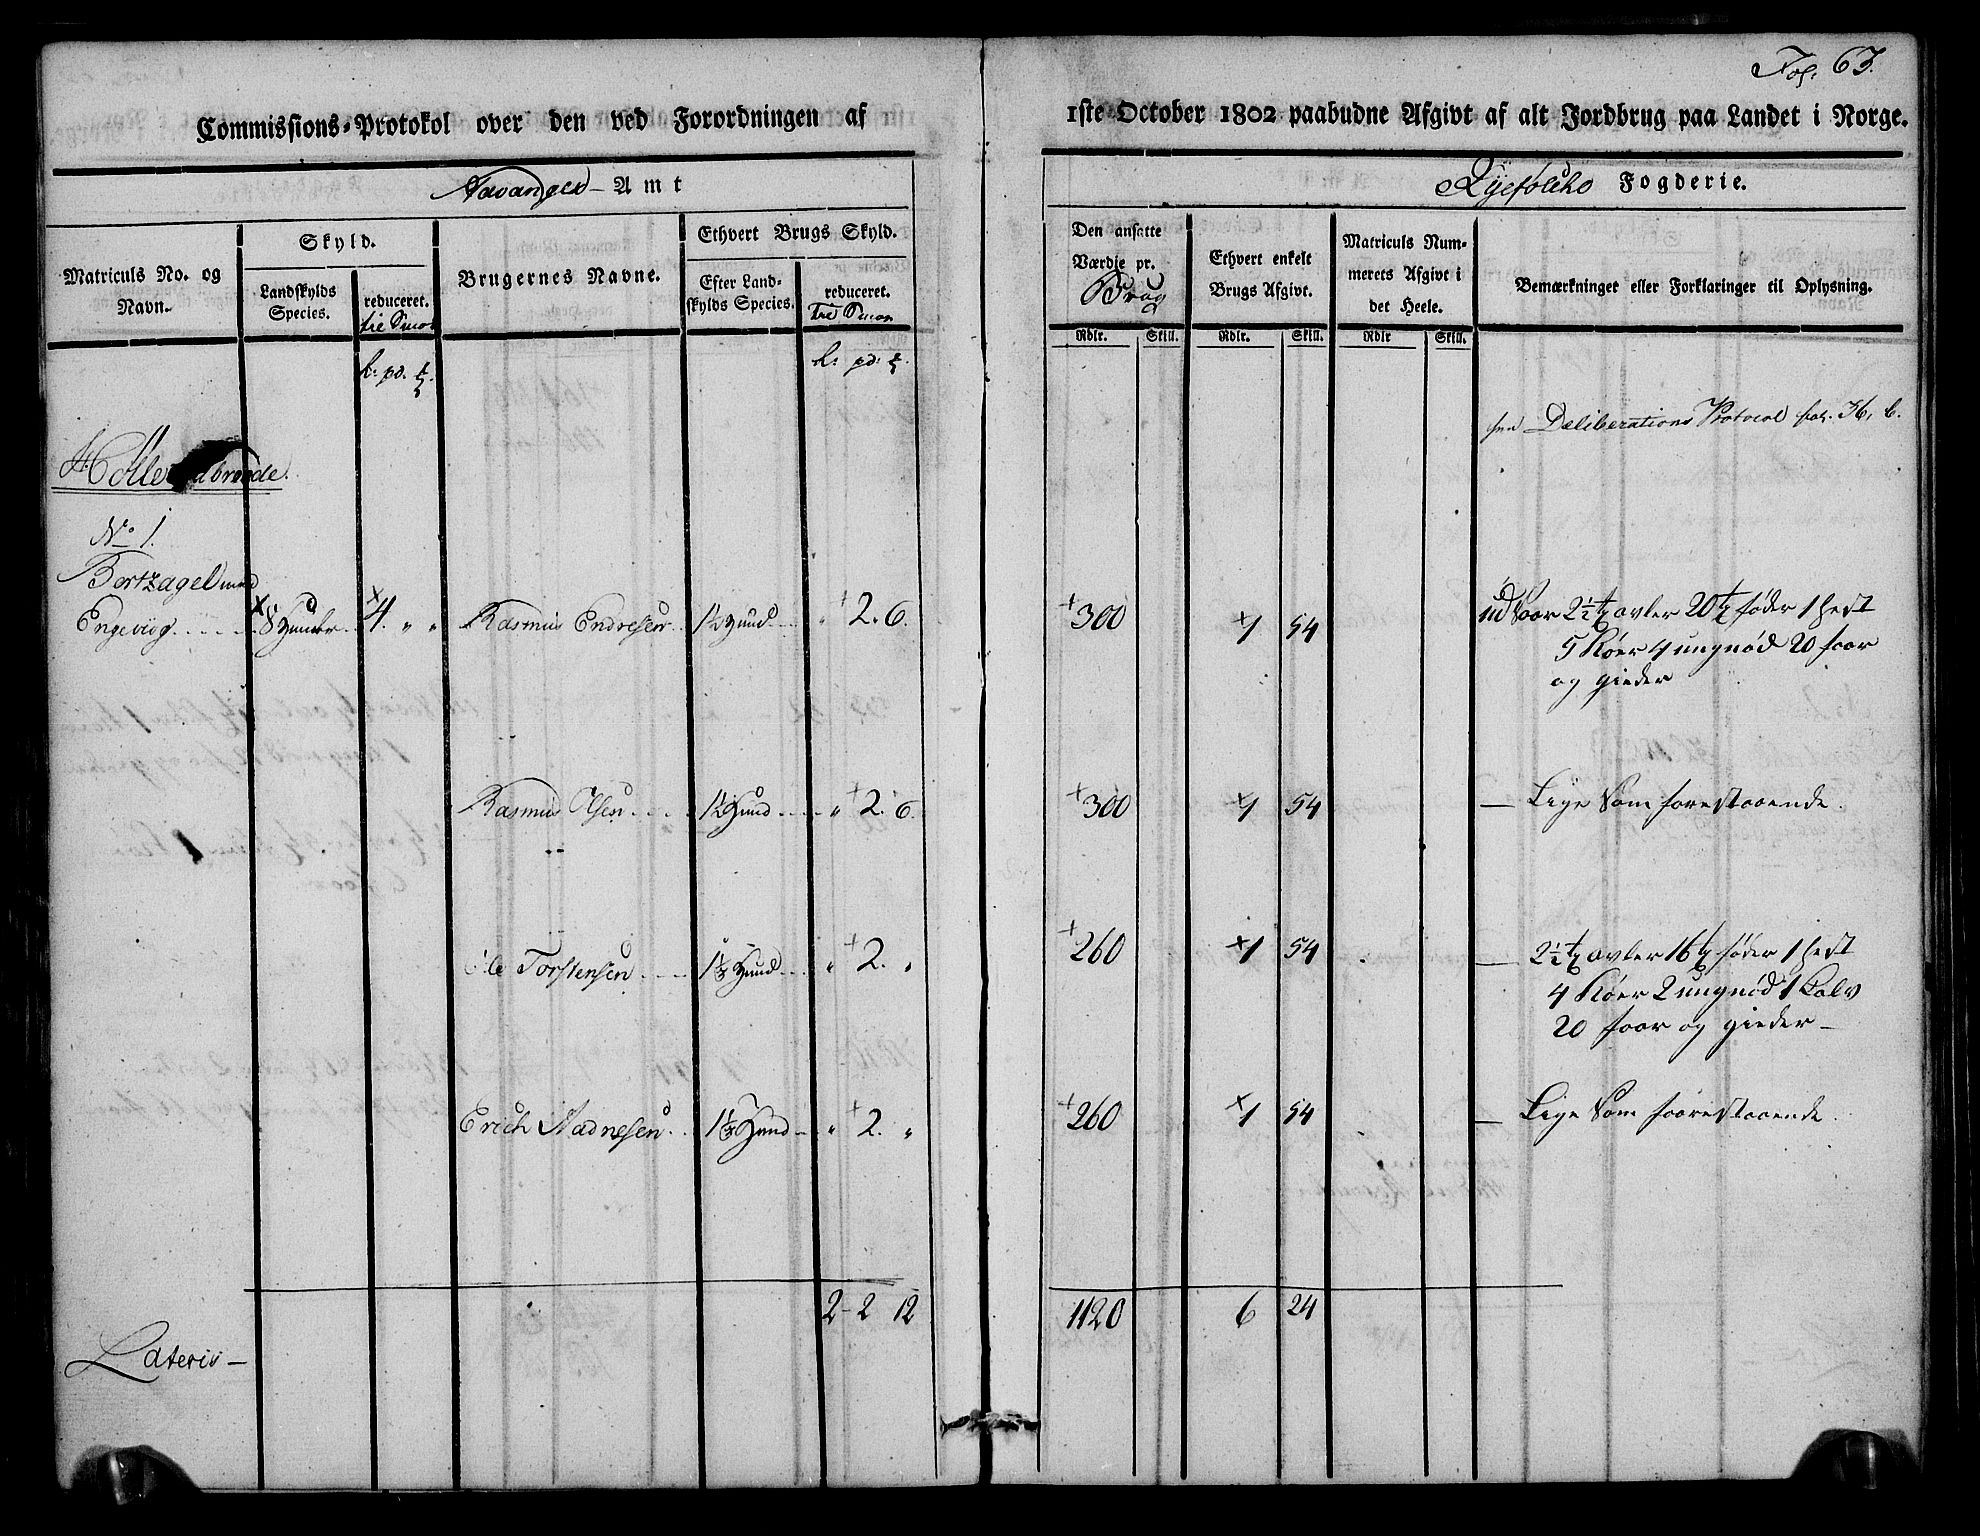 Fol. 63.
Commissions-Protokol over den ved Forordningen af 1ste October 1802 paabudne Afgivt af alt Jordbrug paa Landet i Norge.
Stavanger Amt
Ryefölcke Fogderie.
Matriculs No. og Navn.
Skyld.
Landskylds Species.
reduceret.
Brugernes Navne.
Ethvert Brugs Skyld.
Efter Landskylds Species.
reduceret.
Den ansatte Værdie pr. Brug
Ethvert enkelt Brugs Afgivt.
Matriculs Nummerets Afgivt i det Heele.
Bemærkninger eller Forklaringer til Oplysning.
Rdlr. Skill. Rdlr. Skill. Rdlr Skill.
l: pd. ℔. l: pd: ℔.
Deliberations Protocol fol. 36, b.
No 1.
Bortzagel med
Engevig 8 Hunder 4. „ „ Rasmus Endresen 1½ Hund „ 2. 6. 300 1 54 udsaar 2½ tr avler 20 tr föder 1 hest
5 Köer 4 ungnöd 20 faar
og gieder
Rasmus Olsen 1½ Hund „ 2. 6. 300 1 54 Lige som forestaaende.
Ole Torstensen 1⅓ Hund „ 2. „ 260 1 54 2½ tr avler 16 tr föder 1 hest
4 Köer 2 ungnöd 1 Kalv
20 faar og gieder
Erich Aadnesen 1⅓ Hund „ 2. „ 260 1 54 Lige som foorestaaende.
2 - 2 12 1120 6 24
Lateris